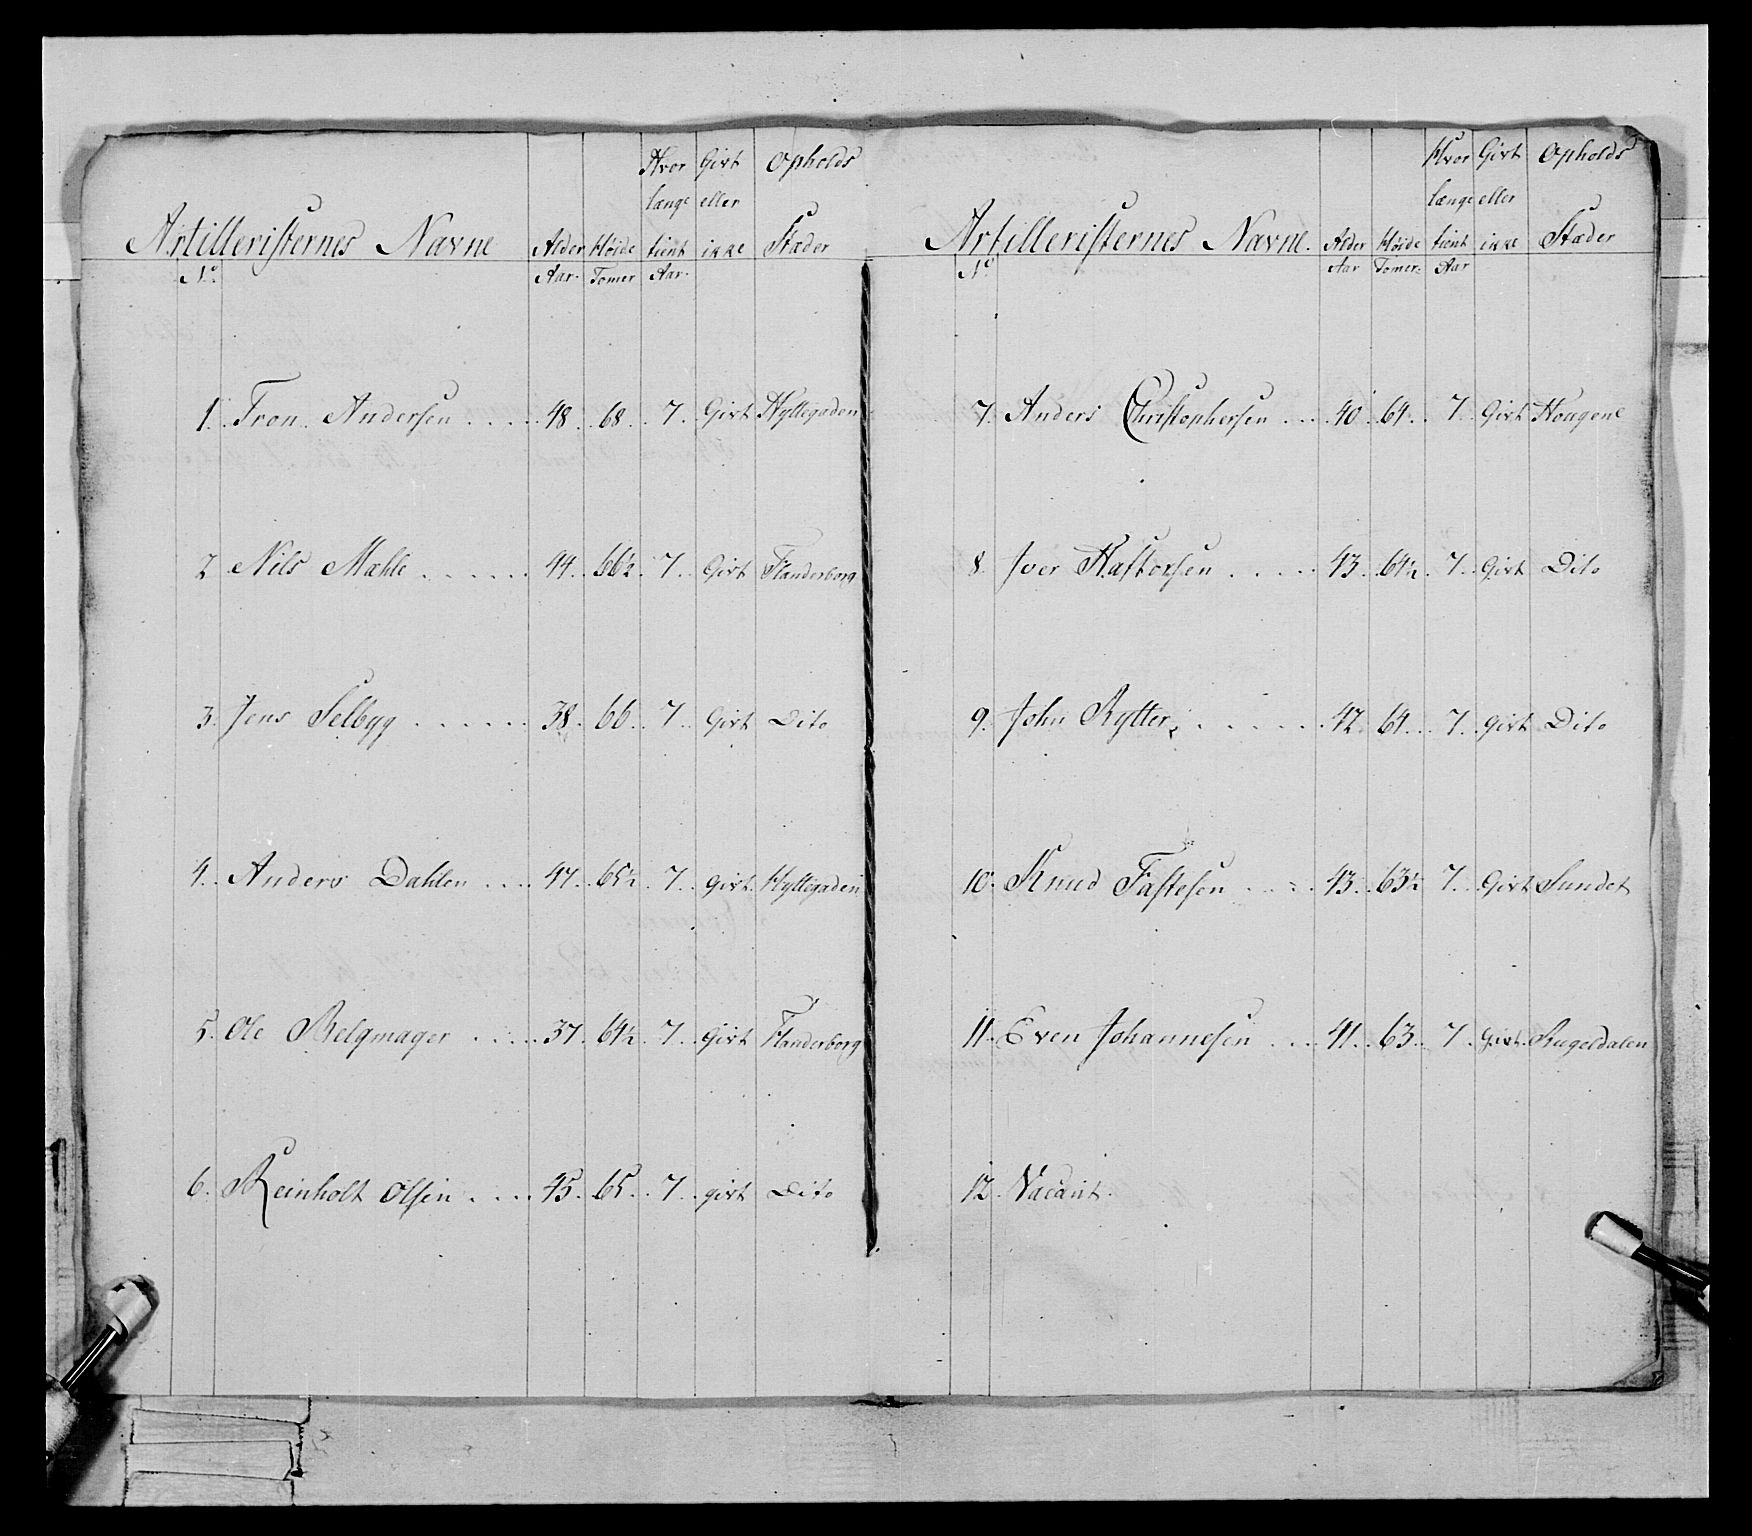 Artilleristernes Navne Alder Høide Hvor længe tient Givt eller ikke Opholds Stæder
No. Aar. Tomer Aar.
1. Tron Andersen . . . . 48. 68. 7. Givt Hyttegaden
2 Nils Mæhle . . . . . . 44. 66½. 7. Givt Flanderborg
3. Jens Selbyg . . . . . . 38. 66. 7. Givt Dito
4. Anders Dahlen . . . . 47. 65½. 7. givt. Hyttegaden
5. Ole Belgmager . . . . . 37. 64½. 7. Givt Flanderborg
6. Reinholt Olsen . . . . 45. 65. 7. givt Dito
Artilleristernes Navne. Alder Høide Hvor længe tient Givt eller ikke Opholds Stæder
No. Aar Tomer. Aar
7. Anders Christophersen . . . 40 64. 7. Givt Hougene
8. Iver Haftorsen . . . . 43. 64½. 7. Givt Dito
9. John Rytter . . . . . . 42. 64. 7. givt Dito
10. Knud Fastesen . . . . 43. 63½ 7. Givt Sundet
11. Even Johannesen . . . 41. 63. 7. Givt. Rugeldalen
12. Vacant.